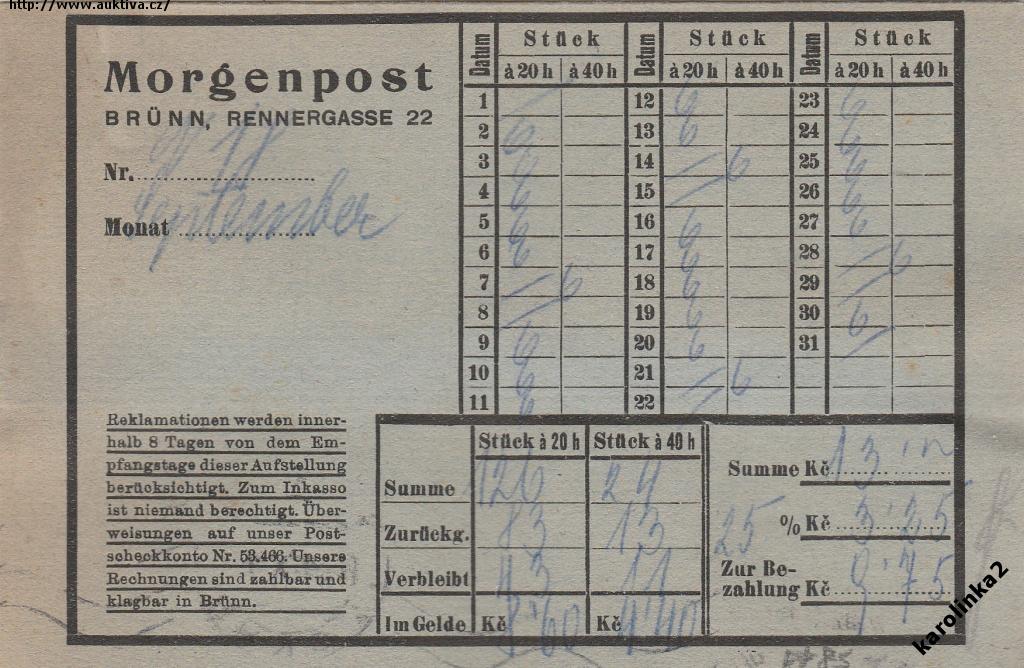 http://www.auktiva.cz/
Morgenpost
BRÜNN, RENNERGASSE 22
Nr.
Monat September
Reklamationen werden inner-
halb 8 Tagen von dem Em-
pfangstage dieser Aufstellung
berücksichtigt. Zum Inkasso
ist niemand berechtigt. Über-
weisungen auf unser Post-
scheckkonto Nr. 53.466. Unsere
Rechnungen sind zahlbar und
klagbar in Brünn.
Datum Stück Datum Stück Datum Stück
à 20 h à 40 h à 20 h à 40 h à 20 h à 40 h
1 / 12 6 23 6
2 6 13 6 24 6
3 6 14 / 6 25 6
4 6 15 / 26 6
5 6 16 6 27 6
6 6 17 6 28 / 6
7 / 6 18 6 29 /
8 / 19 6 30 6
9 6 20 6 31 /
10 6 21 / 6
11 6 22 /
Stück à 20 h Stück à 40 h
Summe 126 24
Zurückg. 83 13
Verbleibt 43 11
Im Gelde Kč 8'60 Kč 4'40
Summe Kč 13
25 % Kč 3'25
Zur Be-
zahlung Kč 9'75
karolinka2